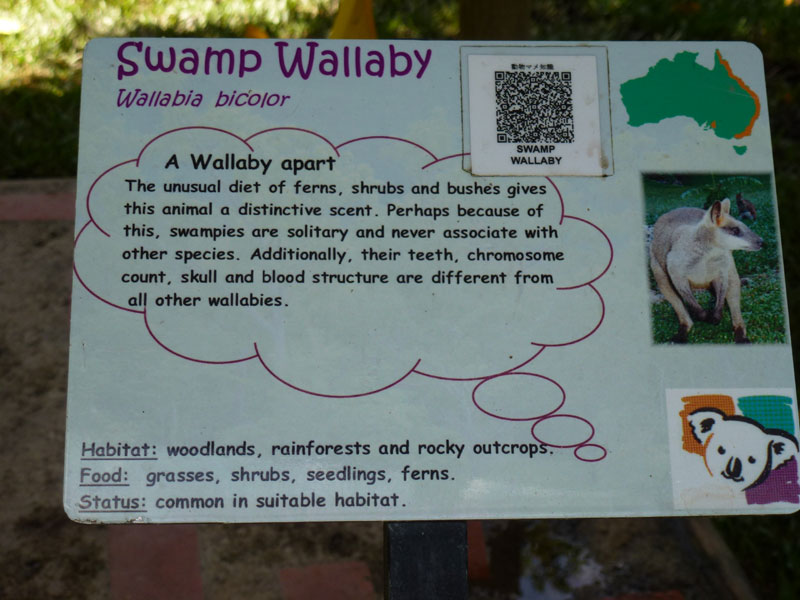 Swamp Wallaby
Wallabia bicolor
動物マメ知識
SWAMP
WALLABY
A Wallaby apart
The unusual diet of ferns, shrubs and bushes gives
this animal a distinctive scent. Perhaps because of
this, swampies are solitary and never associate with
other species. Additionally, their teeth, chromosome
count, skull and blood structure are different from
all other wallabies.
Habitat: woodlands, rainforests and rocky outcrops.
Food: grasses, shrubs, seedlings, ferns.
Status: common in suitable habitat.